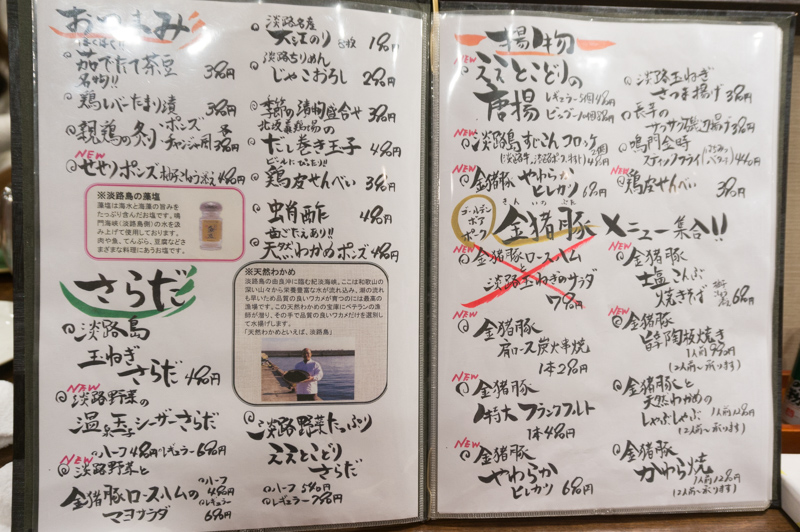 おつまみ
ほくほく!!
茄でたて茶豆
名物!!
鶏レバーたまり漬
親鶏の炙り ポンズ
チャンジャ風
NEW
せせりポンズ
※淡路島の藻塩
藻塩は海水と海藻の旨みを
たっぷり含んだお塩です。鳴
門海峡(淡路島側)の水を汲
み上げて使用しております。
肉や魚、てんぷら、豆腐などさ
まざまな料理にあうお塩です。
さらだ
淡路島
玉ねぎ
さらだ 480円
NEW
淡路野菜の
温玉シーザーさらだ
ハーフ 480円 レギュラー 680円
NEW
淡路野菜と
金猪豚ロースハムの
マヨサラダ
ハーフ
480円
レギュラー
680円
淡路名産
大江のり
淡路ちりめん
じゃこおろし 280円
季節の漬物盛合せ 380円
北坂養鶏場の
だし巻き玉子 480円
ビールにぴったり!!
鶏皮せんべい 380円
虫肖酢 480円
歯ごたえあり!!
天然わかめポンズ 480円
※天然わかめ
淡路島の由良沖に臨む紀淡海峡。ここは和歌山の
深い山々から栄養豊富な水が流れ込み、潮の流れ
も早いため品質の良いワカメが育つのには最高の
漁場です。この天然わかめの宝庫にベテランの漁
師が潜り、その手で品質の良いワカメだけを選別し
て水揚げします。
「天然わかめといえば、淡路島」
淡路野菜たっぷり
ええとこどり
さらだ
ハーフ 540円
レギュラー 780円
揚げ物
NEW
ええとこどりの
唐揚
NEW
淡路島すじこんコロッケ
NEW
金猪豚 やわらか
ヒレカツ 680円
淡路玉ねぎ
さつま揚げ 380円
長芋の
サクサク磯辺揚げ 380円
鳴門金時
スティックフライ
NEW
鶏皮せんべい 380円
ゴールデン
ボア
ポーク
きん いの ぶた
金猪豚 メニュー集合!!
NEW
金猪豚ロースハム
と
淡路玉ねぎのサラダ
780円
NEW
金猪豚
肩ロース炭火串焼
1本280円
NEW
金猪豚
特大フランクフルト
1本480円
NEW
金猪豚
やわらか
ヒレカツ 680円
NEW
金猪豚
塩こんぶ
焼きそば
680円
NEW
金猪豚
旨辛陶板焼き
1人前 980円
(2人前〜承ります)
金猪豚と
天然わかめの
しゃぶしゃぶ 1人前1280円
(2人前〜承ります)
金猪豚
かわら焼
1人前1280円
(2人前〜承ります)